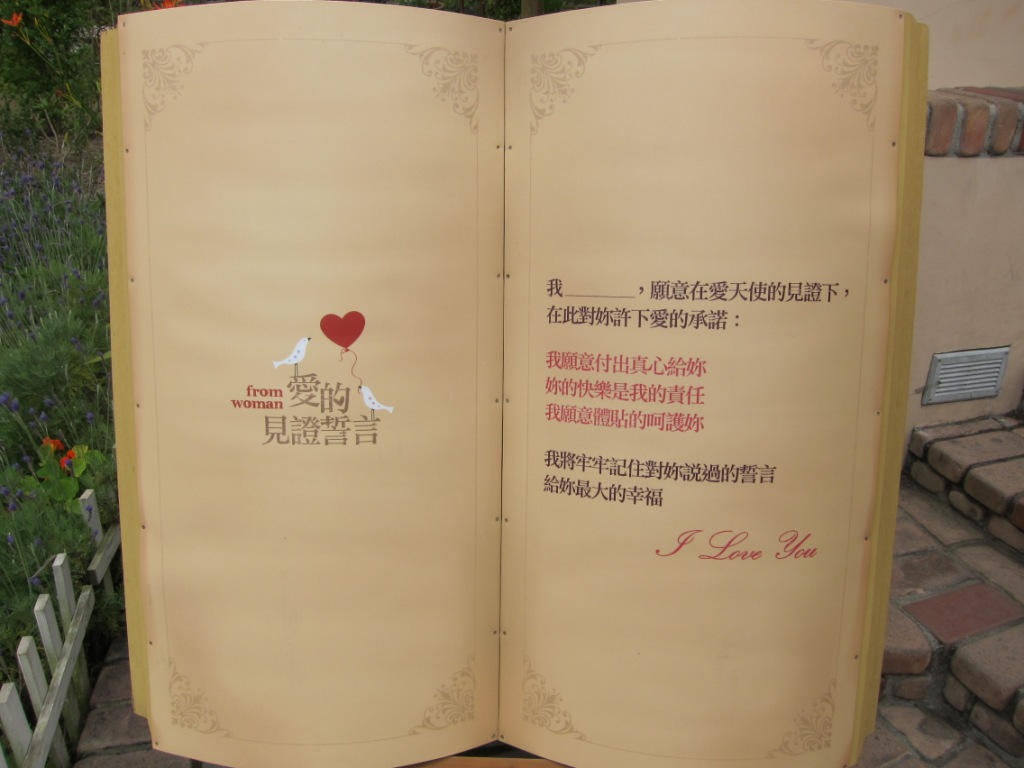 from
woman
愛的
見證誓言
我______，願意在愛天使的見證下，
在此對妳許下愛的承諾：
我願意付出真心給妳
妳的快樂是我的責任
我願意體貼的呵護妳
我將牢牢記住對妳説過的誓言
給妳最大的幸福
I Love You